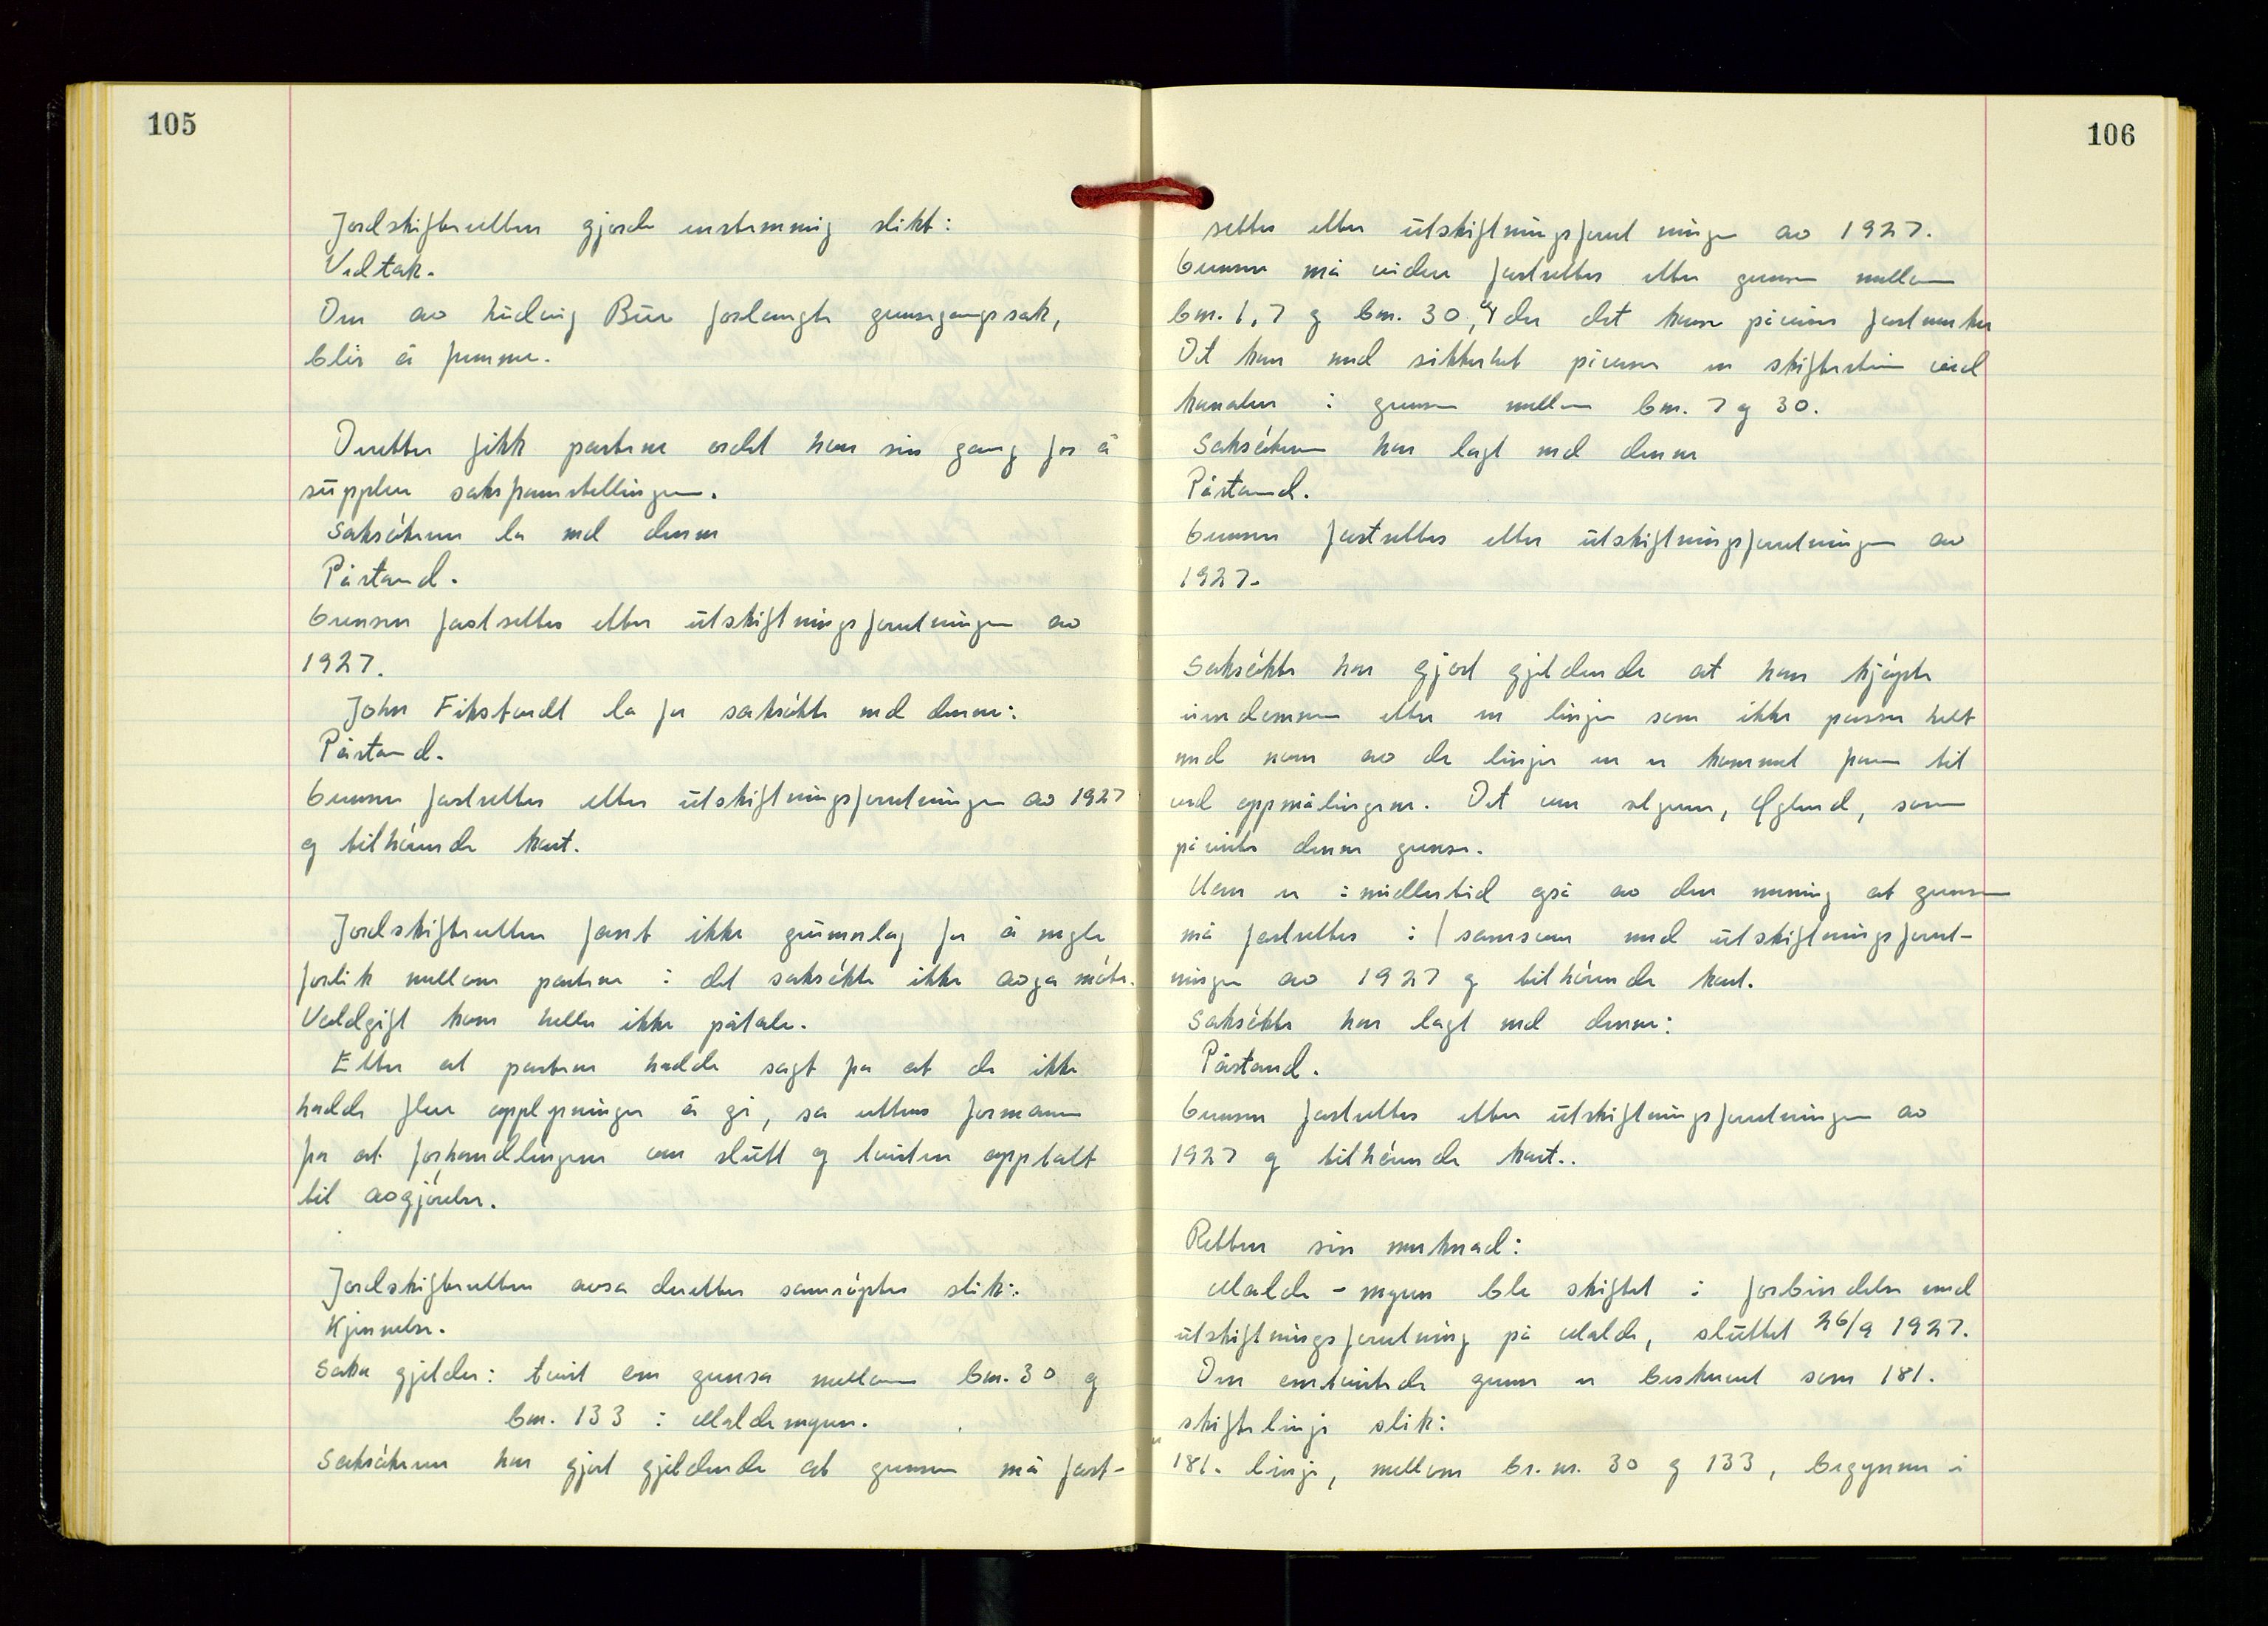 105
Jordskifteretten gjorde enstemmig slikt:
Vedtak.
Den av Ludvig Bue forlangte grensegangssak,
blir å fremme.
Deretter fikk partene ordet hver sin gang for å
supplere saksframstillingen.
Saksøkeren la ned denne
Påstand.
Grensen fastsettes etter utskiftningsforretningen av
1927.
John Fikstvedt la for saksøkte ned denne:
Påstand.
Grensen fastsettes etter utskiftningsforretningen av 1927
og tilhørende kart.
Jordskifteretten fant ikke grunnlag for å megle
forlik mellom partene i det saksøkte ikke avga møte.
Voldgift kom heller ikke på tale.
Etter at partene hadde sagt fra at de ikke
hadde flere opplysninger å gi, sa rettens formann
fra at forhandlingene var slutt og tvisten opptatt
til avgjørelse.
Jordskifteretten avsa deretter samrøystes slik:
Kjennelse.
Saka gjelder: tvist om grensa mellom bnr. 30 og
bnr. 133 i Maldemyren.
Saksøkeren har gjort gjeldende at grensen må fast-
106
settes etter utskiftningsforretningen av 1927.
Grensen må videre fastsettes etter grensen mellom
bnr. 1, 7 og bnr. 30, der det kan påvises fastmerker
Det kan med sikkerhet påvises en skiftestein ved
kanalen i grensen mellom bnr. 7 og 30.
Saksøkeren har lagt ned denne
Påstand.
Grensen fastsettes etter utskiftningsforretningen av
1927.
Saksøkte har gjort gjeldende at han kjøpte
eiendommen etter en linje som ikke passer helt
med noen av de linjer en er kommet fram til
ved oppmålingene. Det var selgeren, Øglend, som
påviste denne grensa.
Han er imidlertid også av den mening at grensen
må fastsettes i samsvar med utskiftningsforret-
ningen av 1927 og tilhørende kart.
Saksøkte har lagt ned denne:
Påstand.
Grensen fastsettes etter utskiftningsforretningen av
1927 og tilhørende kart.
Retten sin merknad:
Malde-myren ble skiftet i forbindelse med
utskiftningsforretning på Malde, sluttet 26/9 1927.
Den omtvistede grense er beskrevet som 181.
skiftelinje slik:
"181. linje, mellom br.nr. 30 og 133, begynner i